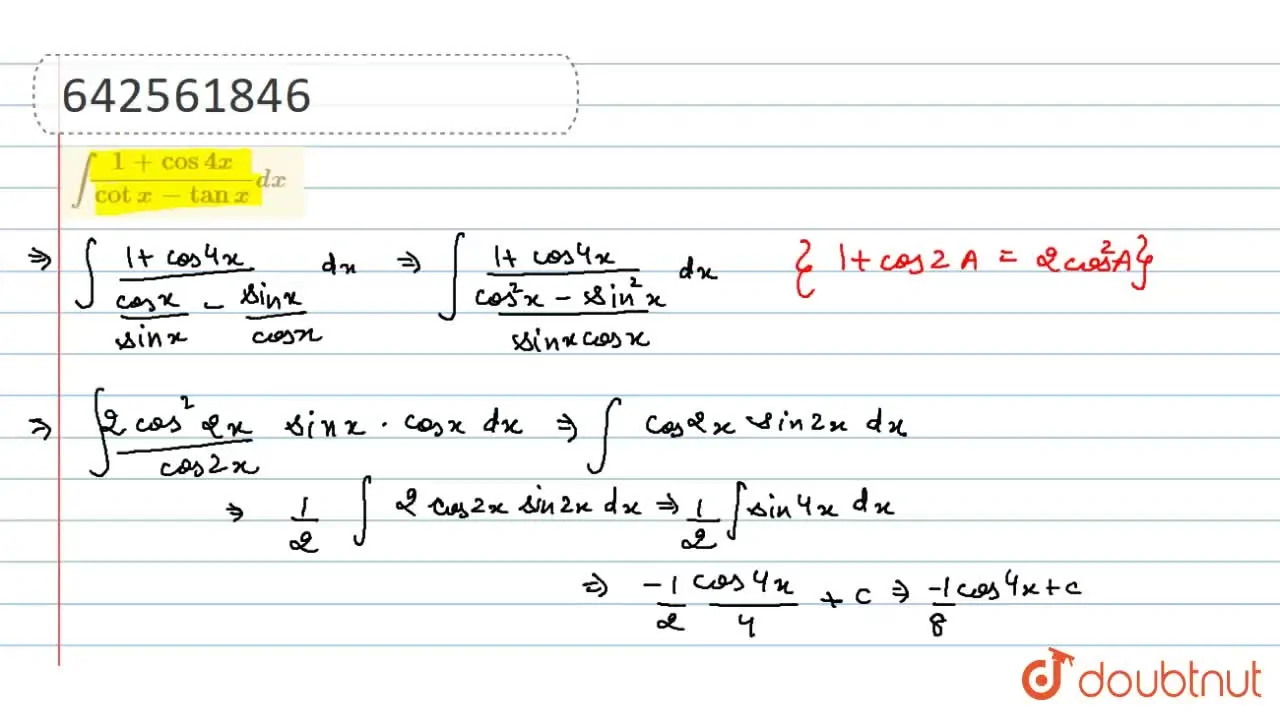 642561846
∫ (1 + cos 4x)/(cot x − tan x) dx
⇒ ∫ (1+ cos4x)/(cosx/sinx − sinx/cosx) dx ⇒ ∫ (1+ cos4x)/((cos²x − sin²x)/(sinx cosx)) dx { 1+cos2A = 2cos²A}
⇒ ∫ (2cos²2x)/(cos2x) sinx · cosx dx ⇒ ∫ cos2x sin2x dx
⇒ 1/2 ∫ 2 cos2x sin2x dx ⇒ 1/2 ∫ sin4x dx
⇒ -1/2 cos4x/4 + c ⇒ -1/8 cos4x + c
doubtnut